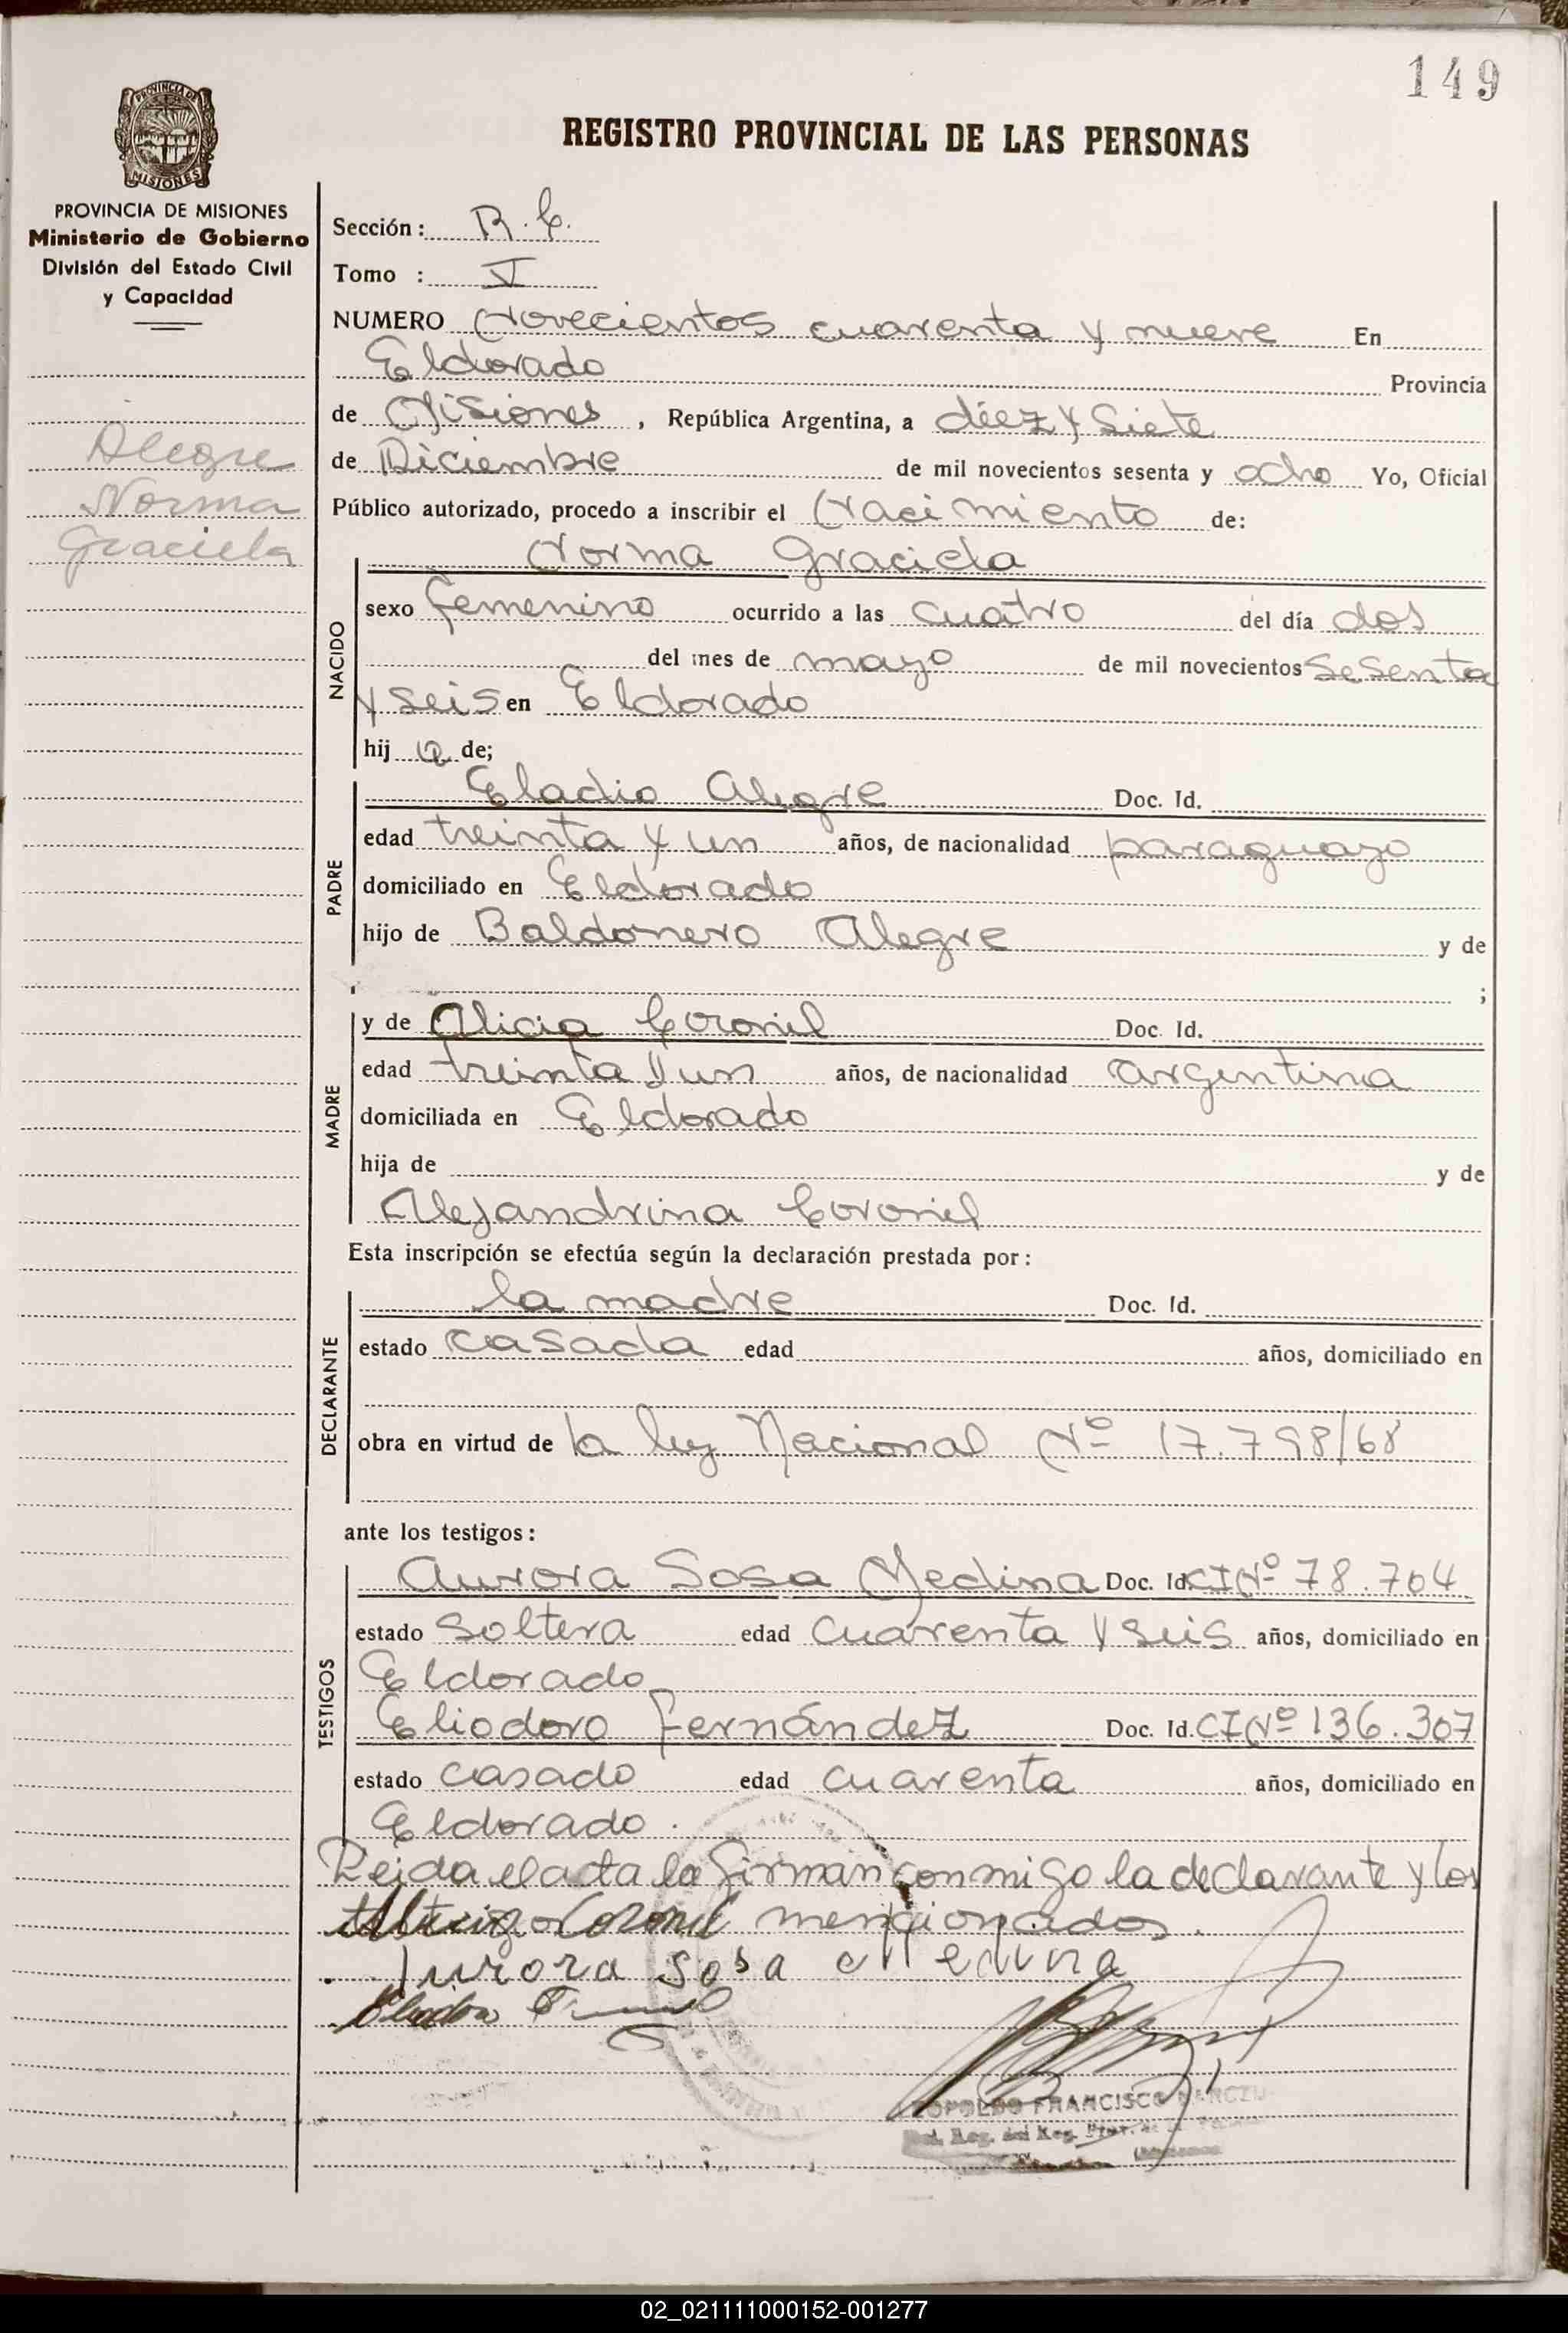 149
PROVINCIA DE MISIONES
REGISTRO PROVINCIAL DE LAS PERSONAS
PROVINCIA DE MISIONES
Ministerio de Gobierno
División del Estado Civil
y Capacidad
Alegre
Norma
Graciela
Sección: R. C.
Tomo : V
NUMERO Novecientos cuarenta y nueve En
Eldorado Provincia
de Misiones, República Argentina, a diez y Siete
de Diciembre de mil novecientos sesenta y ocho Yo, Oficial
Público autorizado, procedo a inscribir el Nacimiento de:
NACIDO
Norma Graciela
sexo femenino ocurrido a las cuatro del día dos
del mes de mayo de mil novecientos Sesenta
y seis en Eldorado
hij a de;
PADRE
Eladio Alegre Doc. Id.
edad treinta y un años, de nacionalidad paraguayo
domiciliado en Eldorado
hijo de Baldonero Alegre y de
;
MADRE
y de Alicia Coronil Doc. Id.
edad treinta y un años, de nacionalidad argentina
domiciliada en Eldorado
hija de y de
Alejandrina Coronil
Esta inscripción se efectúa según la declaración prestada por:
DECLARANTE
la madre Doc. Id.
estado casada edad años, domiciliado en
obra en virtud de la ley Nacional Nº 17.798/68
ante los testigos:
TESTIGOS
Aurora Sosa Medina Doc. Id. CI Nº 78.704
estado Soltera edad Cuarenta y seis años, domiciliado en
Eldorado
Eliodoro Fernández Doc. Id. CI Nº 136.307
estado casado edad cuarenta años, domiciliado en
Eldorado.
Leida el acta la firman conmigo la declarante y los
Coronil mencionados.
Aurora Sosa Medina
FRANCISCO
02_021111000152-001277